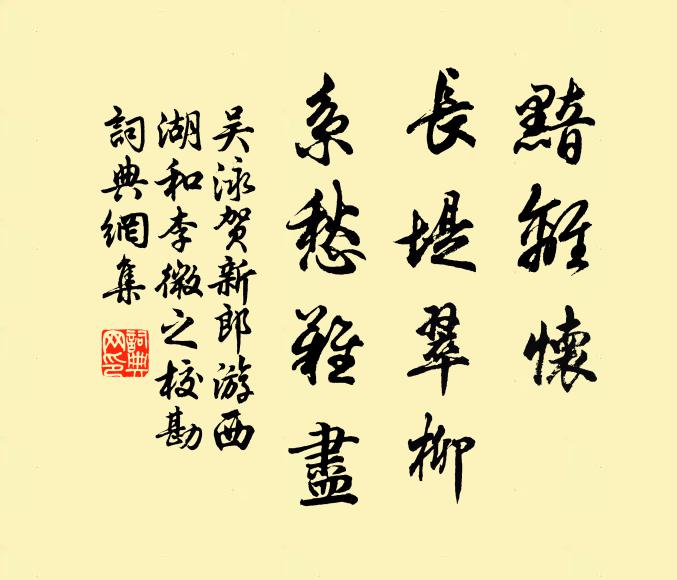 黯離懷
長堤翠柳
系愁難盡
吴泳贺新郎游西
湖和李微之校勘
詞典網集
詞典網印